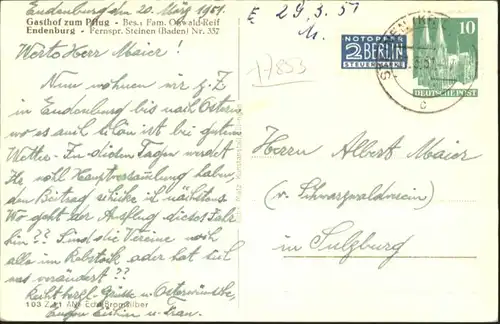 Endenburg den 20. März 1951.
Gasthof zum Pflug - Bes.: Fam. Oswald Reif
Endenburg - Fernspr. Steinen (Baden) Nr. 357
Werter Herr Maier!
Nun wohnen wir z. Z
in Endenburg bis nach Ostern
wo es auch schön ist bei gutem
Wetter. In diesen Tagen werdet
Ihr wohl Hauptversammlung haben,
den Beitrag schicke ich nächstens
Wo geht der Ausflug dieses Jahr
hin?? Sind die Vereine noch
alle im Rebstock oder hat sich
was verändert??
Recht herzl. Grüße u. Osterwünsche,
Eugen u. Frau.
103 Z 11 Bromsilber
E 29.3.51
17853
NOTOPFER
2 BERLIN
STEUERMARKE
STEINEN
c
10
DEUTSCHE POST
Herrn Albert Maier
(v. Schwarzwaldverein)
in Sulzburg